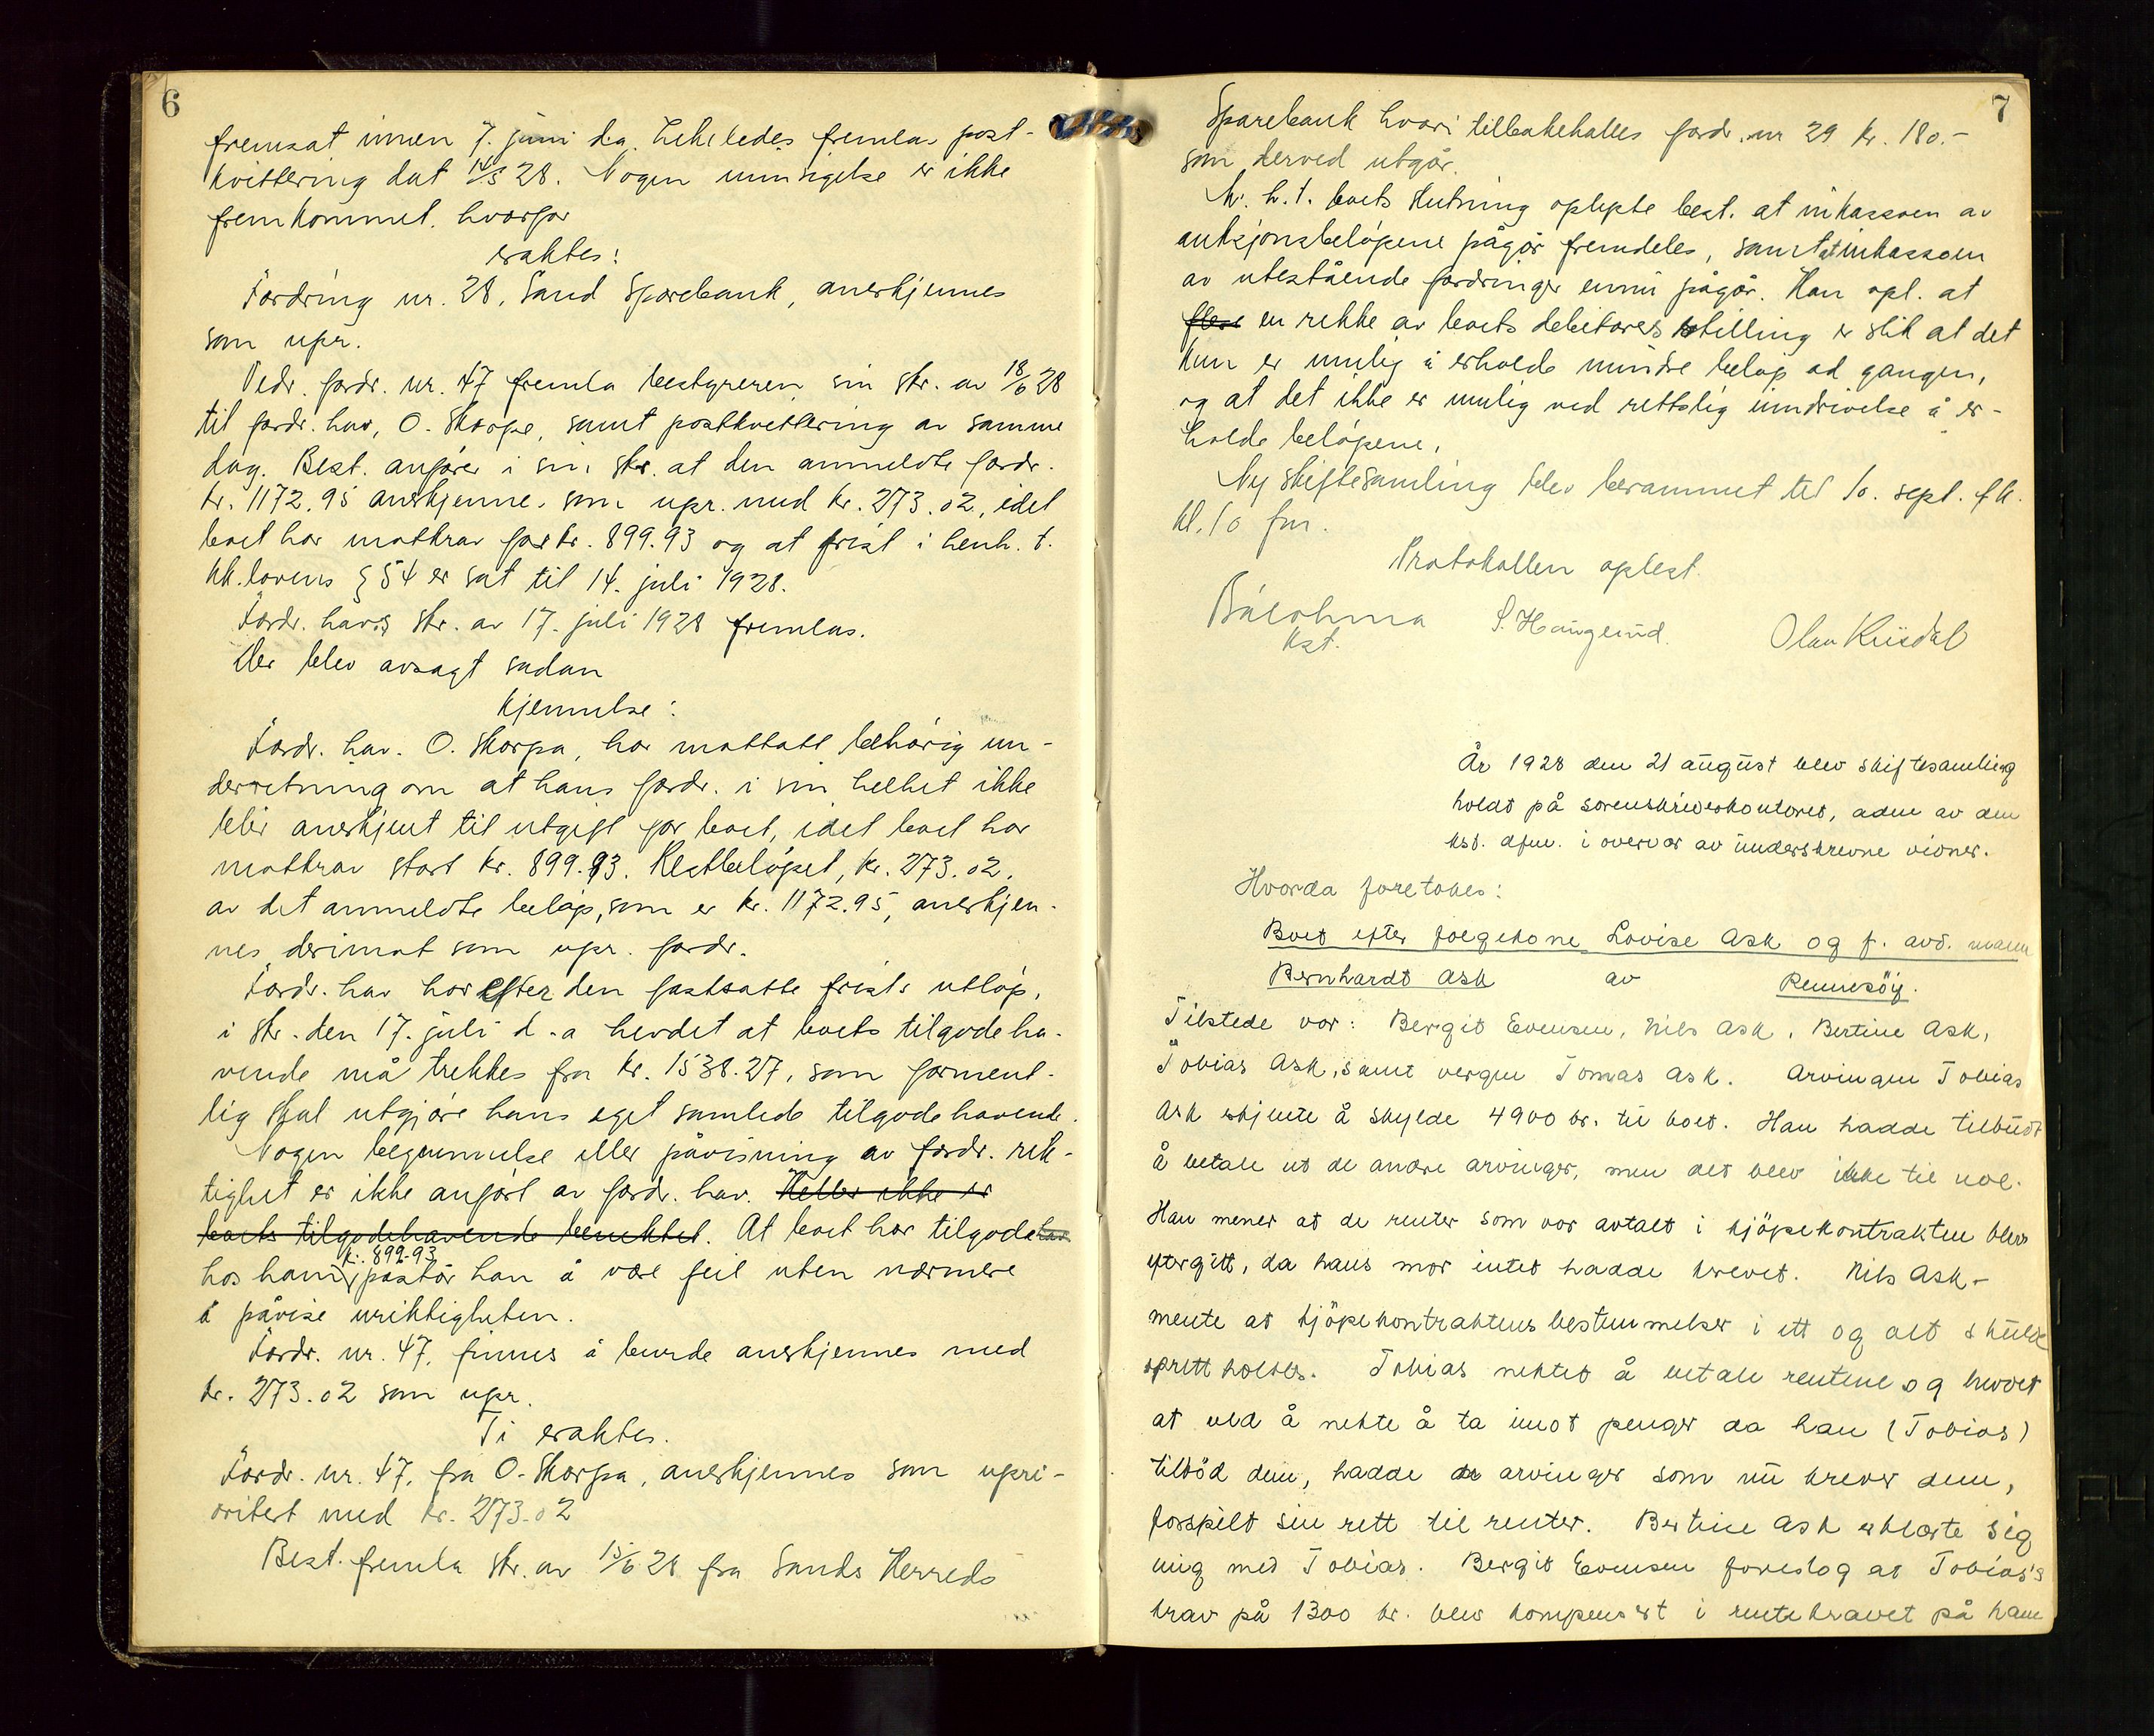 6
fremsat innen 7. juni d.a. Likeledes fremla post-
kvittering dat 14/5 28. Nogen innsigelse er ikke
fremkommet. hvorfor
eraktes:
Fordring nr. 28, Sand Sparebank, anerkjennes
som upr.
Vedr. fordr. nr. 47 fremla bestyreren sin skr. av 18/6 28
til fordr. hav, O. Skorpe, samt postkvittering av samme
dag. Best. anfører i sin skr. at den anmeldte fordr.
kr. 1172.95 anerkjenne. som upr. med kr. 273.02, idet
boet har motkrav for kr. 899.93 og at frist i henh. t.
kk.lovens § 54 er sat til 14. juli 1928.
Fordr. havs skr. av 17. juli 1928 fremlas.
Der blev avsagt sadan
kjennelse:
Fordr. hav. O. Skorpa, har mottatt behørig un-
derretning om at hans fordr. i sin helhet ikke
blir anerkjent til utgift for boet, idet boet har
motkrav stort kr. 899.93. Restbeløpet, kr. 273.02.
av det anmeldte beløp, som er kr. 1172.95, anerkjen-
nes derimot som upr. fordr.
Fordr. hav har efter den fastsatte frists utløp,
i skr. den 17. juli d.a hevdet at boets tilgodeha-
vende må trekkes fra kr. 1538.27, som forment-
lig skal utgjøre hans eget samlede tilgodehavende.
Nogen begrunnelse eller påvisning av fordr. rik-
tighet er ikke anført av fordr. hav. Heller ikke er
boets tilgodehavende benektet. At boet har tilgodehav
kr. 899.93
hos ham påstår han å være feil uten nærmere
å påvise uriktigheten.
Fordr. nr. 47, finnes å burde anerkjennes med
kr. 273.02 som upr.
Ti eraktes.
Fordr. nr. 47, fra O. Skorpa, anerkjennes som upri-
oritert med kr. 273.02
Best. fremla skr. av 15/6 28 fra Sands Herreds
7
Sparebank hvori tilbakekalles fordr. nr 29 kr. 180.-
som derved utgår.
M. h. t. boets slutning oplyste best. at inkassoen av
auksjonsbeløpene pågår fremdeles, samt at inkassoen
av utestående fordringer ennu pågår. Han opl. at
flere en rekke av boets debitorers stilling er slik at det
kun er mulig å erholde mindre beløp ad gangen,
og at det ikke er mulig ved rettslig inndrivelse å er-
holde beløpene.
Ny skiftesamling blev berammet til 10. sept. f.k.
kl. 10 fm.
Protokollen oplest.
S. Hauglund. Olav
kst.
År 1928 den 21 august blev skiftesamling
holdt på sorenskriverkontoret, adm av den
kst. dfm. i overvær av underskrevne vidner.
Hvorda foretokes:
Boet efter folgekone Lovise Ask og f. avd. mann
Bernhardt Ask av Rennesöy.
Tilstede var: Bergit Evensen, Nils Ask, Bertine Ask,
Tobias Ask, samt vergen Tomas Ask. Arvingen Tobias
Ask erkjente å skylde 4900 kr. til boet. Han hadde tilbudt
å betale ut de andre arvinger, men det blev ikke til noe.
Han mener at de renter som var avtalt i kjöpekontrakten blev
eftergitt, da hans mor intet hadde krevet. Nils Ask-
mente at kjöpekontraktens bestemmelser i ett og alt skulde
oprettholdes. Tobias nektet å betale rentene og hevdet
at ved å nekte å ta imot penger da han (Tobias)
tilböd dem, hadde de arvinger som nu krever dem,
forspilt sin rett til renter. Bertine Ask erklærte sig
enig med Tobias. Bergit Evensen foreslog at Tobias's
krav på 1300 kr. blev kompensert i rentekravet på ham